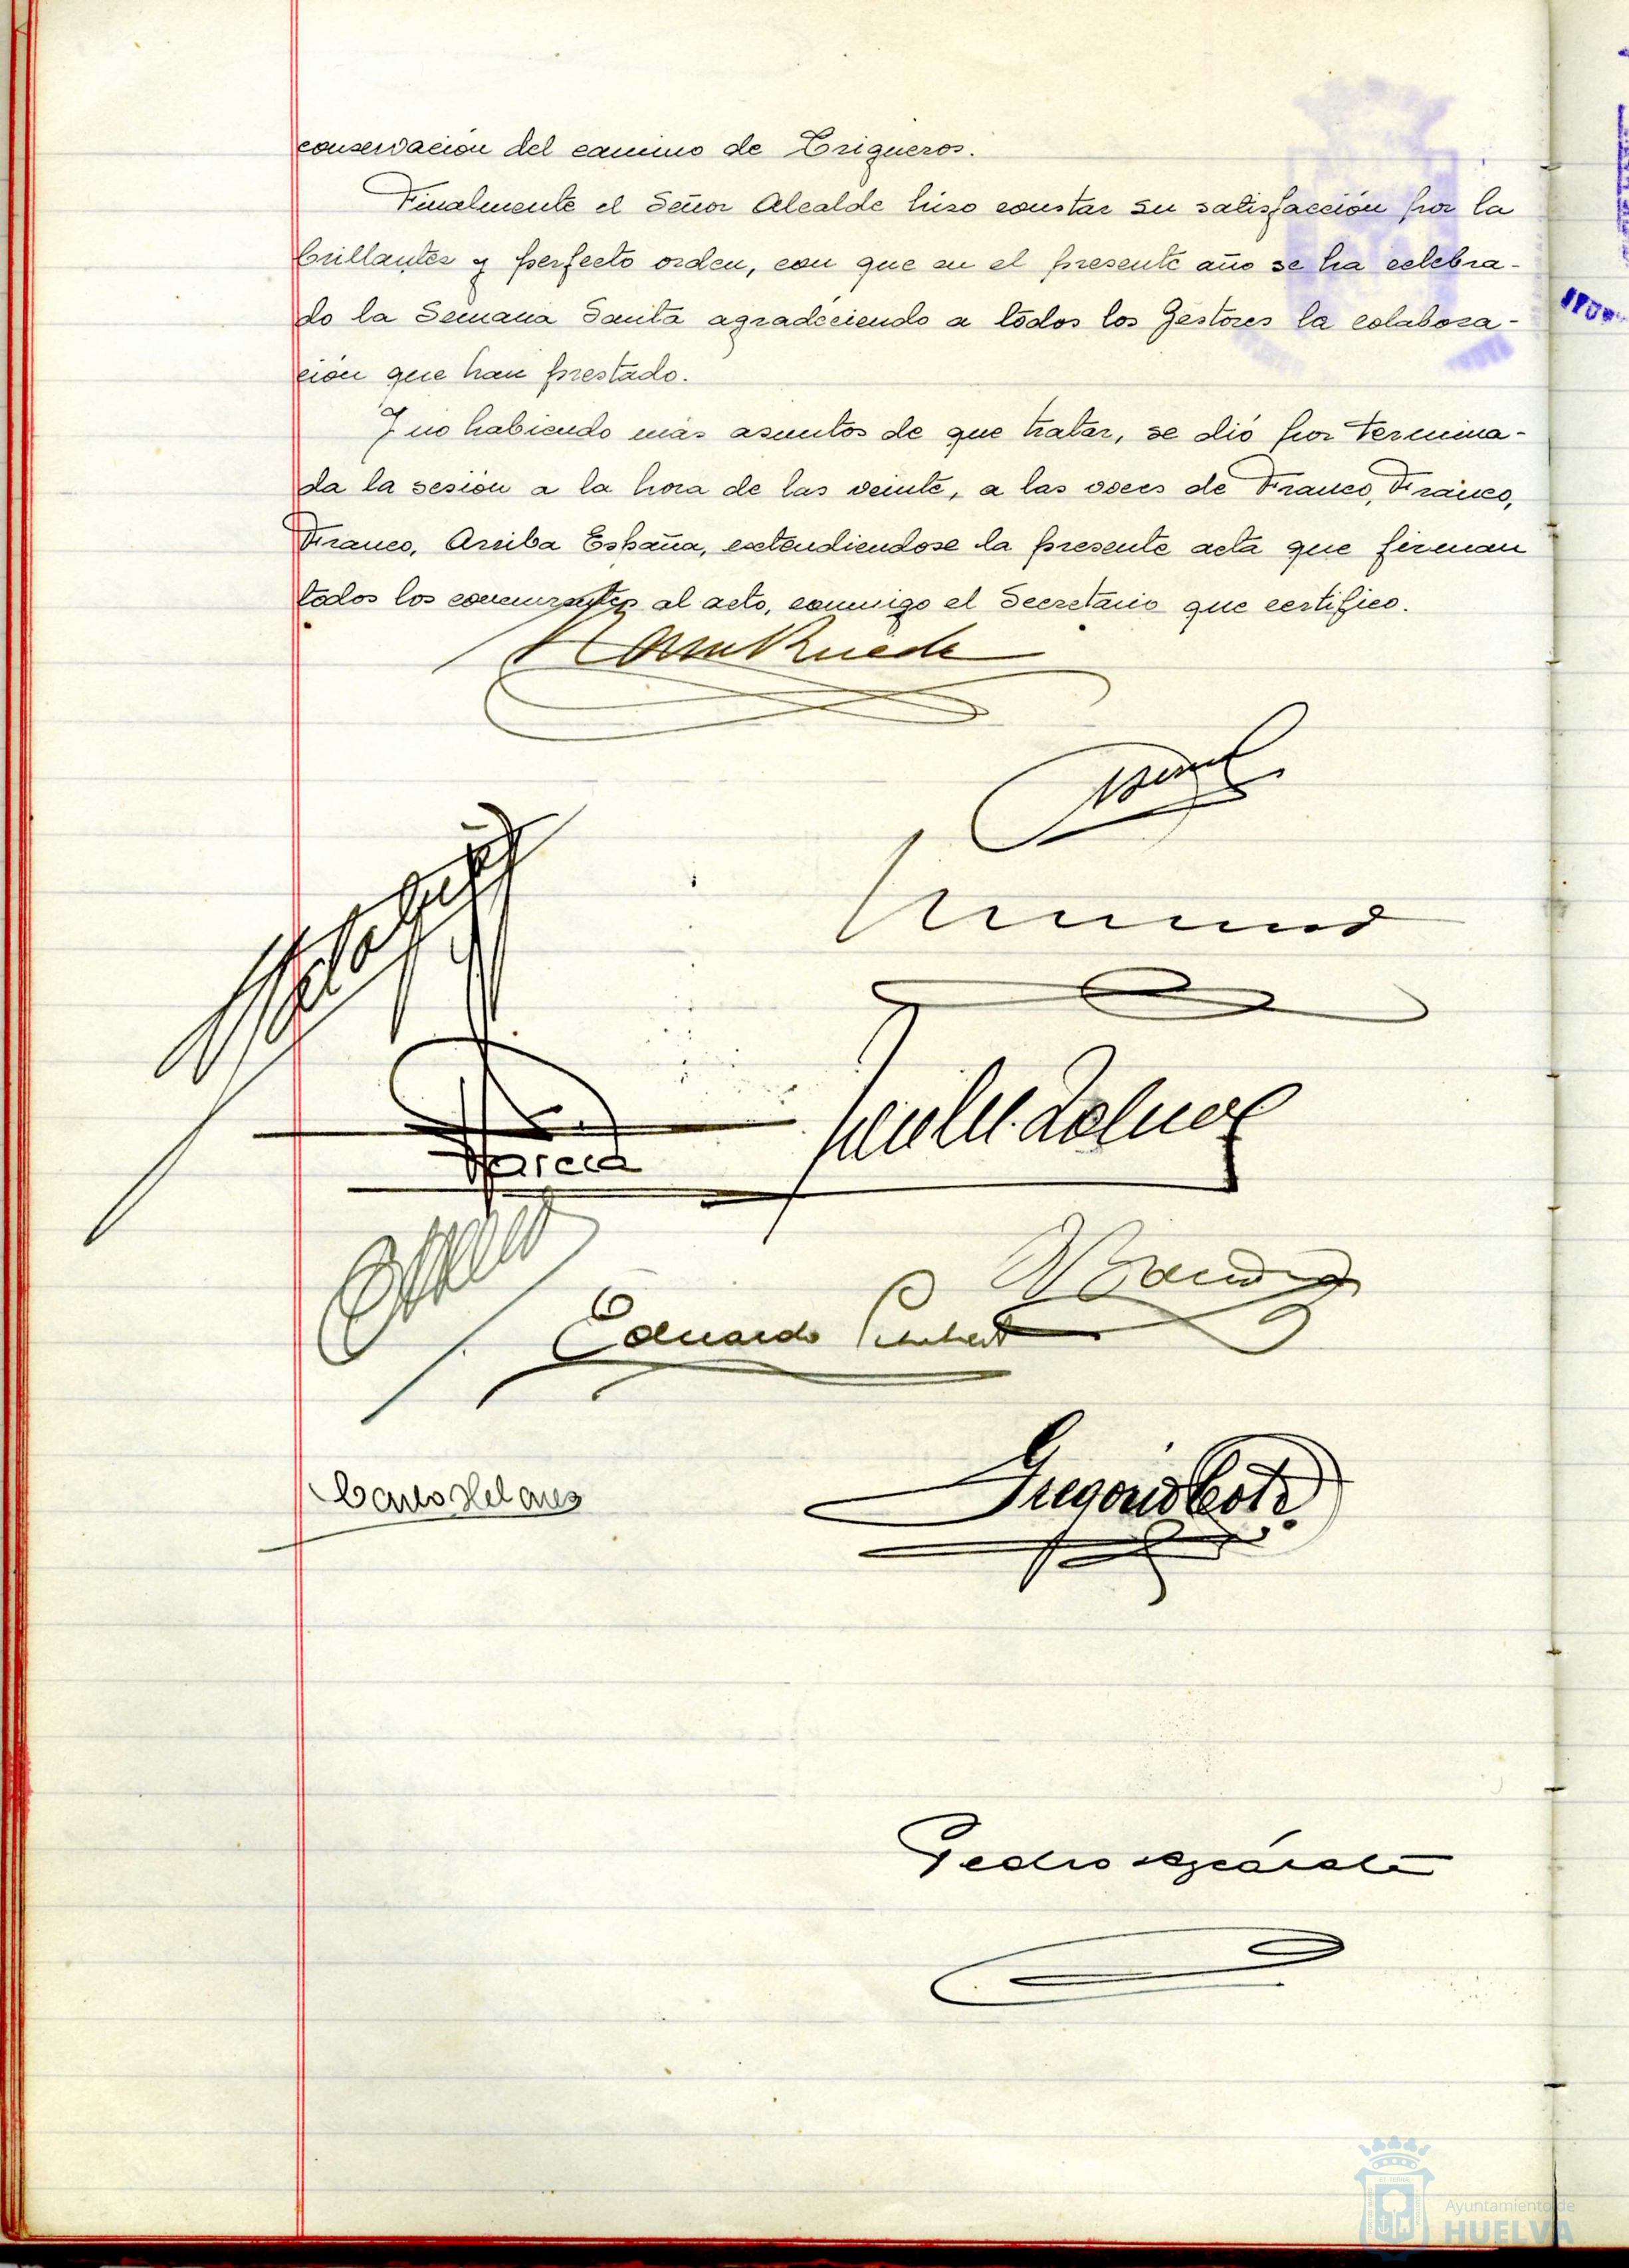 conservación del camino de Trigueros.
Finalmente el Señor Alcalde hizo constar su satisfacción por la
brillantez y perfecto orden, con que en el presente año se ha celebra-
do la Semana Santa agradeciendo a todos los Gestores la colabora-
ción que han prestado.
Y no habiendo más asuntos de que tratar, se dió por termina-
da la sesión a la hora de las veinte, a las voces de Franco, Franco,
Franco, Arriba España, extendiendose la presente acta que firman
todos los concurrentes al acto, conmigo el Secretario que certifico.
García
Eduardo
Gregorio
Pedro
Ayuntamiento de
HUELVA